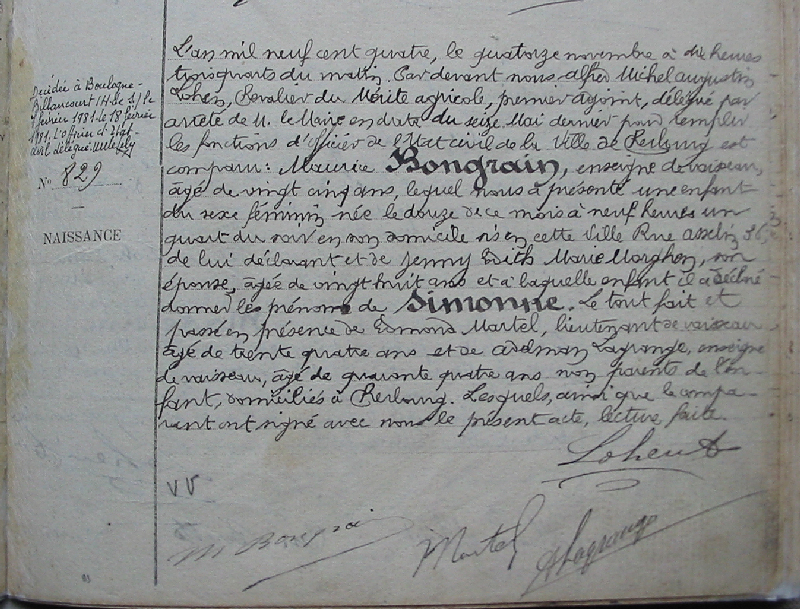 Décédée à Boulogne-
Billancourt (H-de-S) le
février 1981. Le 18 février
1981. L'officier d'état-
civil délégué
N° 829
NAISSANCE
L'an mil neuf cent quatre, le quatorze novembre à dix heures
trois quarts du matin. Par devant nous Alfred Michel Augustin
Chevalier du Mérite agricole, premier adjoint, délégué par
arrêté de M. le Maire en date du seize Mai dernier pour remplir
les fonctions d'officier de l'Etat civil de la Ville de Cherbourg est
comparu: Maurice Bongrain, enseigne de vaisseau,
âgé de vingt cinq ans, lequel nous a présenté une enfant
du sexe féminin née le douze de ce mois à neuf heures un
quart du soir en son domicile sis en cette Ville Rue Asselin 36,
de lui déclarant et de Jenny Edith Marie Marghem, son
épouse, âgée de vingt huit ans et à laquelle enfant il a déclaré
donner les prénoms de Simonne. Le tout fait et
passé en présence de Edmond Martel, lieutenant de vaisseau
âgé de trente quatre ans et de Lagrange, enseigne
de vaisseau, âgé de quarante quatre ans non parents de l'en-
fant, domiciliés à Cherbourg. Lesquels, ainsi que le compa-
rant ont signé avec nous le présent acte, lecture faite.
VV
M Bongrain Martel Lagrange